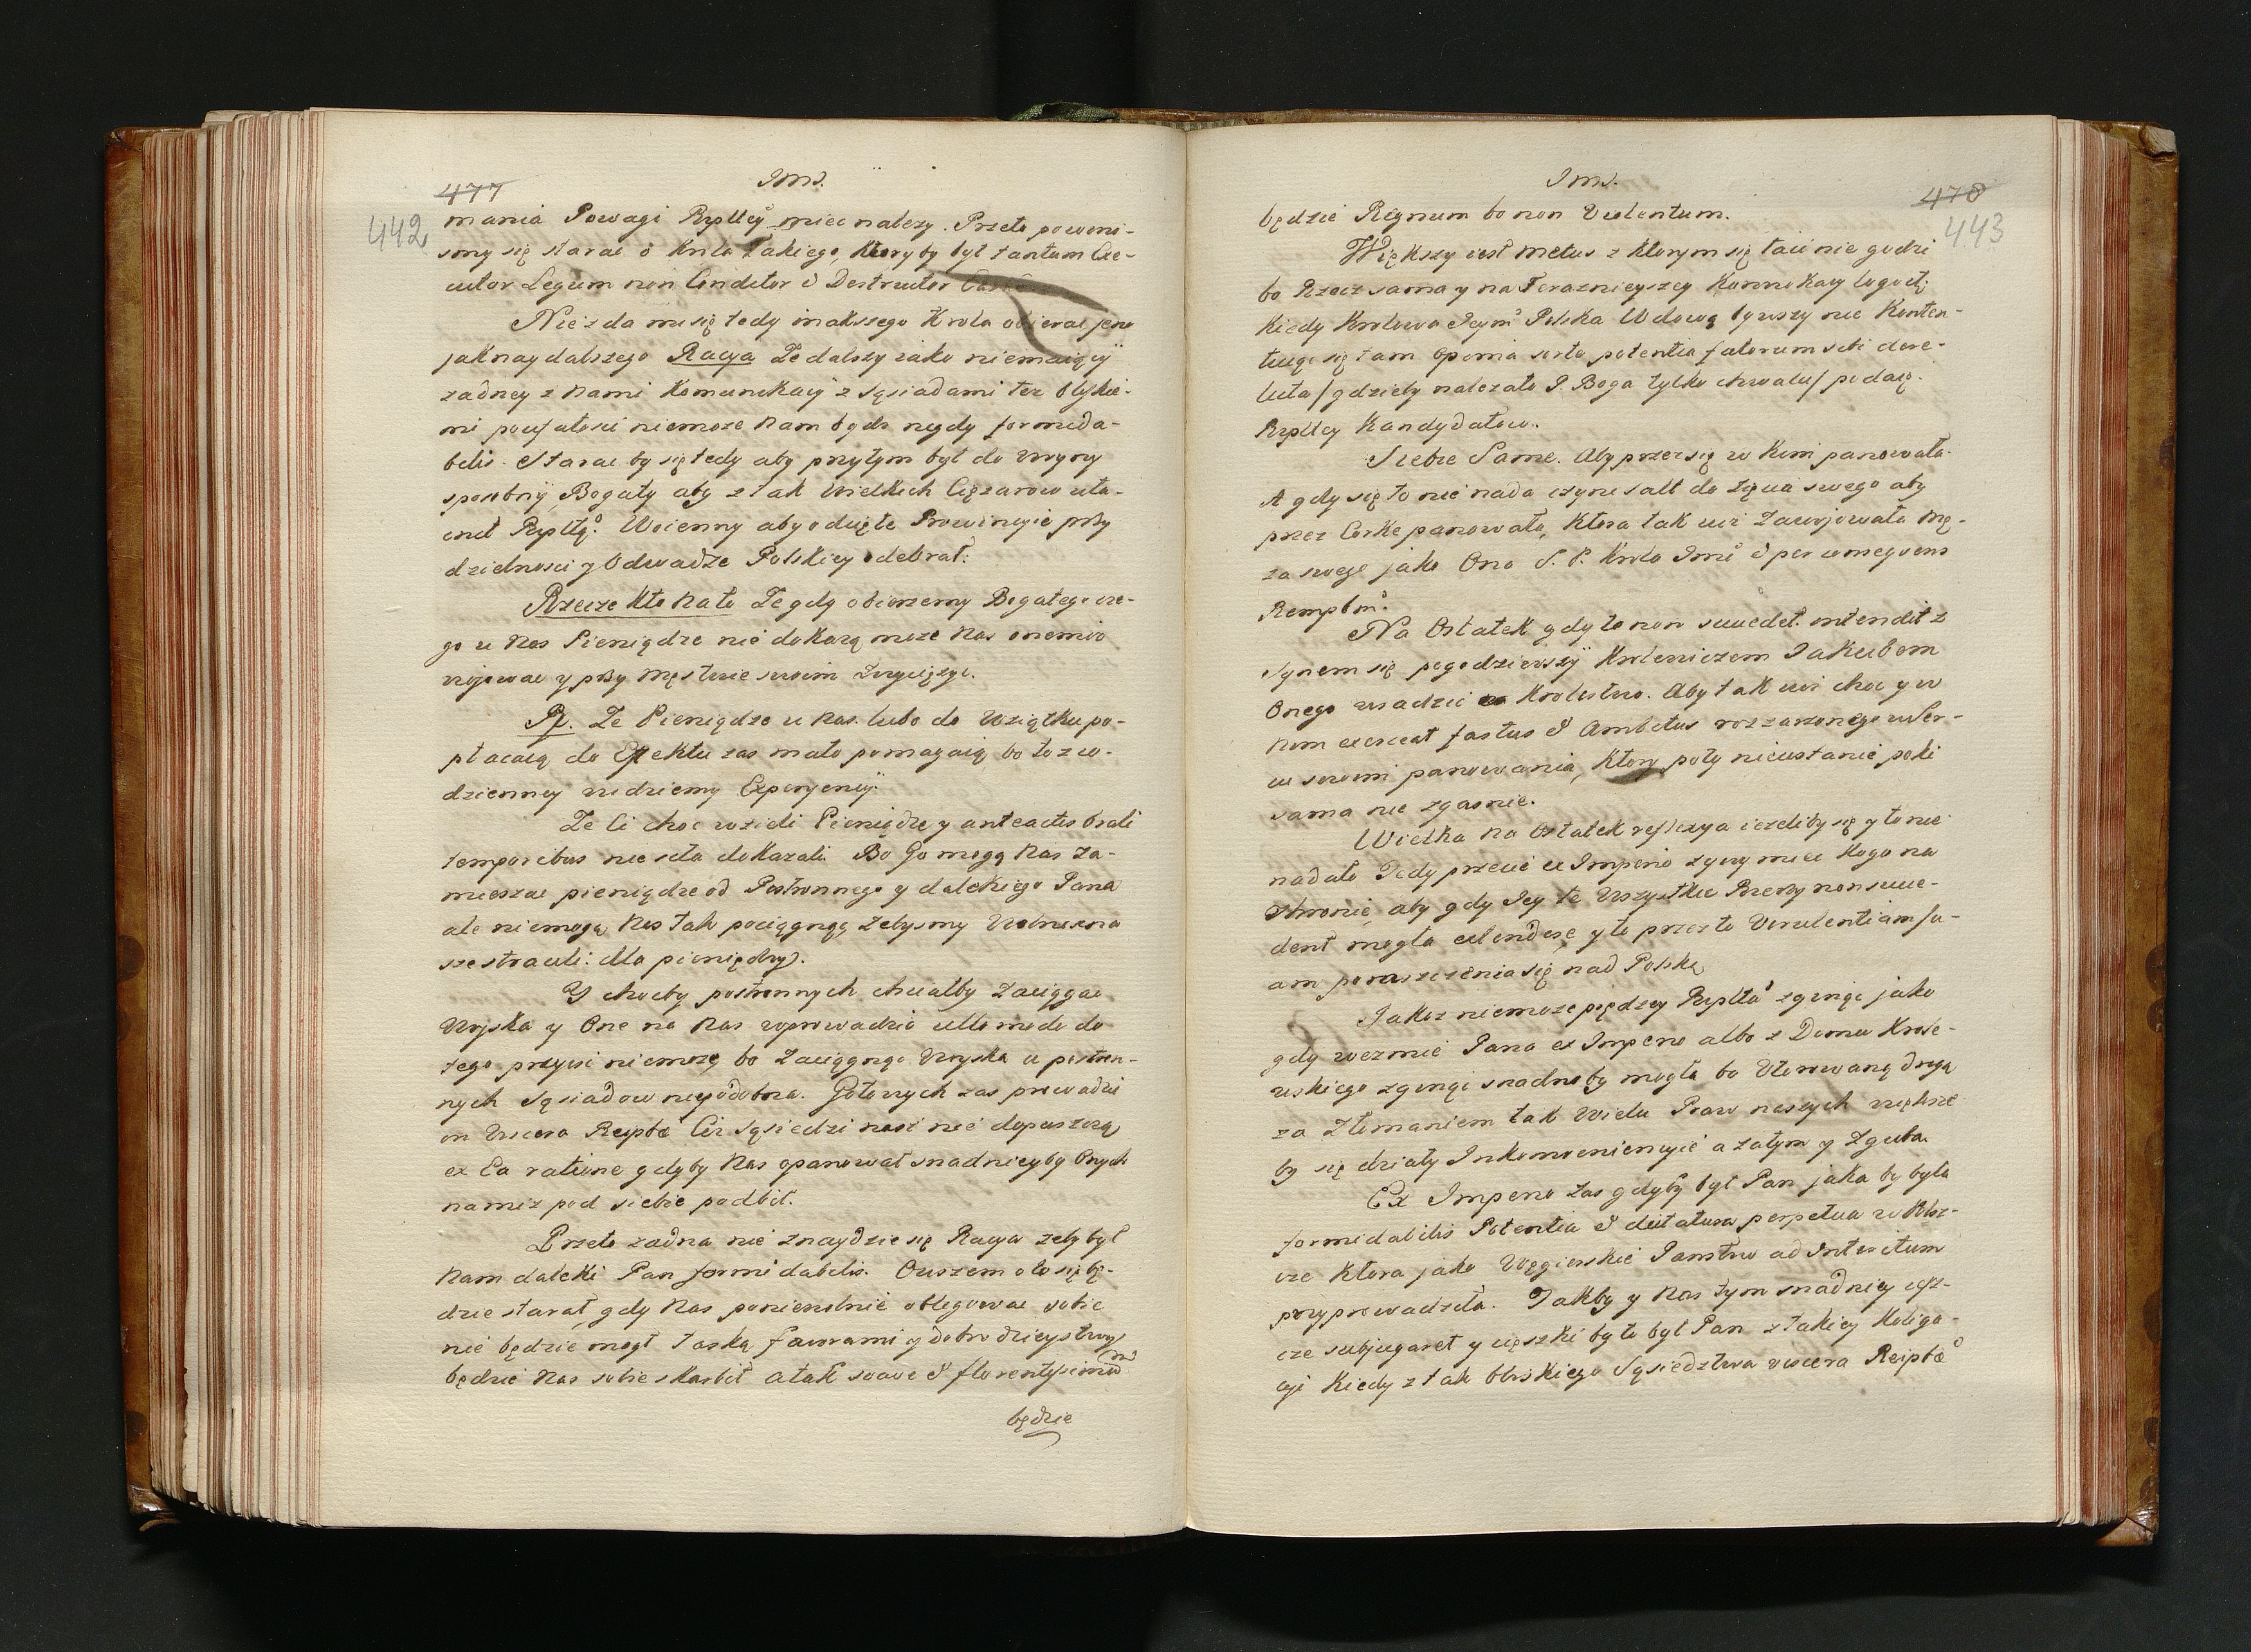 477
442
mania Powagi Rzpltey miec nalezy. Przeto powini-
smy się starac o Krola takiego, ktory by był tantum Exe-
cutor Legum non Conditor & Destructor
Nie zda mi się tedy inakszego Krola obierac jeno
jaknaydalszego Racya Ze dalszy iako niemaiący
zadney z nami Komunikacyi z Sąsiadami tez bliskie-
mi poufałosci niemoze nam bydz nigdy formida-
bilis. Starac by się tedy aby przytym był do Woyny
sposobny, Bogaty aby z tak Wielkich Cięzarow uła-
cnił Rzpltą. Woienny aby odięte Prowincyie przy
dzielnosci y Odwadze Polskiey odebrał.
Rzecze kto na to Ze gdy obierzemy Bogatego cze-
go u Nas Pieniądze nie dokazą moze Nas onemi
wojowac y przy męstwie swoim Zwycięzyc.
Rx. Ze Pieniądze u Nas lubo do Wziątku po-
płacaią do Effektu zas mało pomagaią, bo to z co-
dzienney widziemy Experyencyi.
Ze Ci choc wzieli Pieniądze y anteactis brali
temporibus nie siła dokazali. Bo Go mogą Nas za-
mieszac pieniądze od Postronnego y dalekiego Pana
ale niemogą Nas tak pociągnąc zebysmy Wolnosc na
sze stracili dla pieniędzy.
Y chocby postronnych chciałby Zaciągac
Woyska y One na Nas wprowadzic ullo modo do
tego przyisc niemoze bo Zaciągnąc Woyska u postron-
nych Sąsiadow niepodobna. Gotowych zas prowadzic
in Viscera Reipbcæ Ciz Sąsiedzi nasi nie dopuszczą
ex Ea ratione gdyby Nas opanował snadnieyby Onych
namiz pod siebie podbił.
Przeto zadna nie znaydzie się Racya zeby był
Nam daleki Pan formidabilis. Owszem o to się bę-
dzie starał, gdy Nas poniewolnie obligowac sobie
nie będzie mogł łaską faworami y dobrodzieystwy
będzie Nas sobie skarbił a tak suave & florentissimum
będzie
478
443
będzie Regnum bo non Violentum.
Większy iest Metus z ktorym się taic nie godzi
bo Rzecz sama y na Teraznieyszey Konwokacyi
Kiedy Krolowa Jeym Polska Wdową bywszy nie Konten-
tuąc się tam opima sorte potentia fatorum sibi dere-
licta /gdzieby nalezało P. Boga tylko chwalic/ podaie
Rzpltey Kandydatow.
Siebie Same. Aby przez się w kim panowała.
A gdy się to nie nada czyni salt do Zięcia swego aby
przez Corkę panowała, Ktora tak iuz Zawojowała Mę-
za swego jako Ona S. P. Krola Jmci & per consequens
Rempbcam.
Na Ostatek gdy to non succedet. intendit z
Synem się pogodziwszy Krolewiczem Jakubem
Onego wsadzic na Krolestwo. Aby tak iuz choc y w
Nim exerceat fastus & Ambitus rozzarzonego w Ser-
cu swoim panowania, Ktory poty nieustanie poki
sama nie zgasnie.
Wielka na Ostatek reflexya iezeliby się y to nie
nadało Tedy przecie ex Imperio zyczy miec kogo na
Thronie, aby gdy Jey te Wszystkie Rzeczy non succe-
dent mogła y to przez to Virulentiam su-
am pomszczenia się nad Polską
Jakoz niemoze prędzey Rzplta zginąc jako
gdy wezmie Pana ex Imperio albo z Domu Krole-
wskiego zginąc snadno by mogła bo Utorowaną drogą
za Złomaniem tak Wielu Praw naszych większe
by się działy Inkonweniencyie a zatym y Zguba.
Ex Imperio Zas gdyby był Pan jaka by była
formidabilis Potentia & dictatura perpetua w Rlsz-
cze ktora jako Węgierskie Panstwo ad Interitum
przyprowadziła. Takby y Nas tym snadniey ies-
cze subjugaret y cięszki by to był Pan z takiey Koliga-
cyi Kiedy z tak bliskiego Sąsiedztwa viscera Reipbcæ